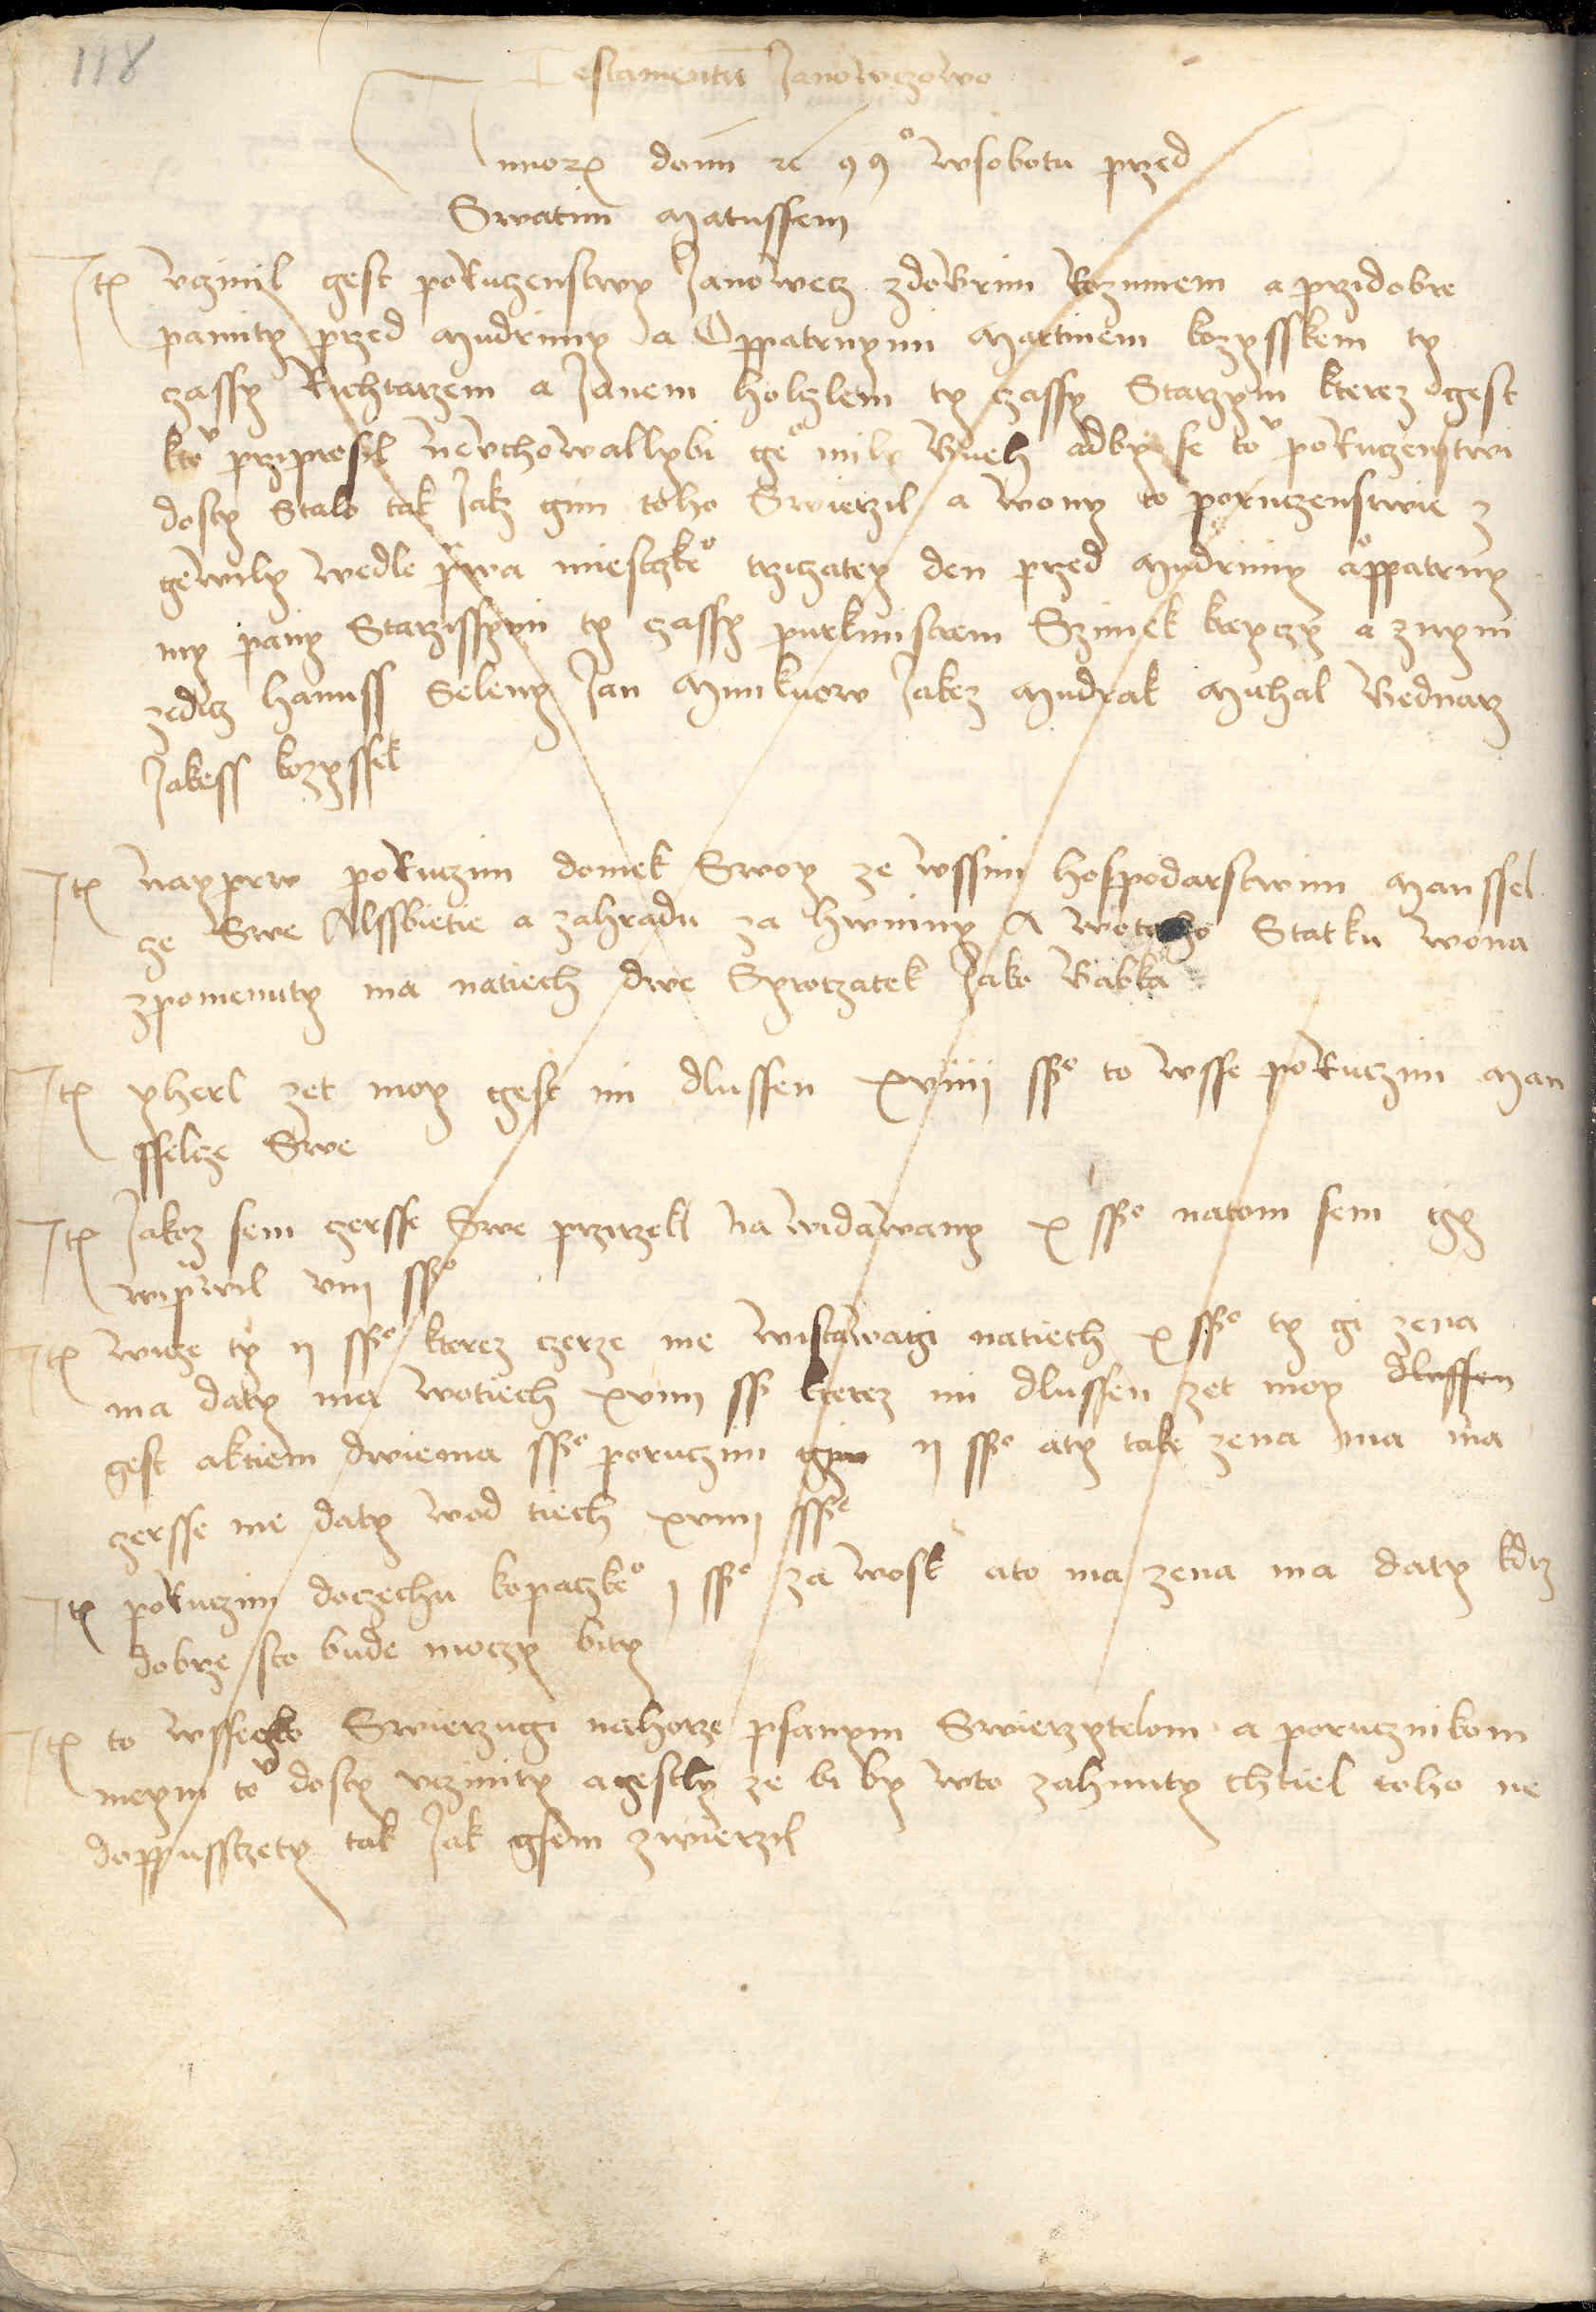 118
Testamentu Janowczowo
Annorx domi rc 99° wsobotu przed
Swatim Matussem
Itx vczinil gest poruczenstwy Janowecz zdobrim Rozumem a przidobre
pamity przed Mudrimy a Oppatrnymi Martinem kozysskem ty
czassy Richtarzem a Janem holczlem ty czassy Starzym kterez gest
kto prziprosyl nevchowallybi ge° mily Bueh adby se to poruczenstwi
dosty Stalo tak Jakz gim toho Swierzil a wony to poruczenstwie z
gewily wedle prwa miesczke° trziczatey den przed Mudrimy a°ppatrny
my pany Starzissymi ty czassy purkmistrem Szimek krayczy a znym
zedicz hanuss Seleny Jan Munkuow Jakez Mudrak Michal Bednarz
Jakess kozyssek
Itx nayprw poruczim domek Swoy ze wssim hospodarstwim Manssel
ze Swe Alssbietie a zahradu za hwininy A wotoho Statku wona
zpomenuty ma natiech dwe Syrotzatek Jako Babka
Itx yherl zet moy gest mi dlussen xviiij ss° to wsse poruczim Man
sselcze Swe
Itx Jakoz sem czersse Swe przirzekl na widawany x ss° natom sem gy
wiprwil viii ss°
Itx wicze ty ij ss° kterez czerze me wistawagi natiech x ss° ty gi zena
ma daty ma wotiech xviiij ss kterez mi dlussen zet moy dlussen
gest aktiem dwiema ss° poruczim gim ij ss° aty take zena ma ma
czersse me daty wod tiech xviiij ss°
Itx poruczim doczechu kopaczke° j ss° za wosk ato ma zena ma daty kdiz
dobrze sto bude moczy bity
Itx to wssecko Swierzugi nahorze psanym Swierzytelom a porucznikom
meym to dosty vczinity agestly ze bi by wto zahnuty chtiel toho ne
doppussczety tak Jak gsem zwierzil